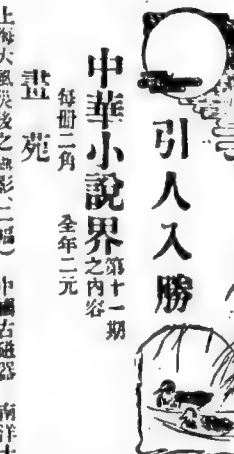 引人入勝
中華小說界
第十一期
之內容
每冊二角 全年二元
畫苑
上海大風災後之影(二幅) 中國古磁器 南洋